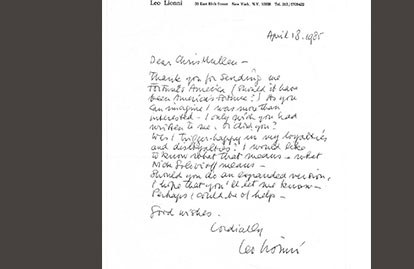 Leo Lionni
New York, N.Y. 10028
April 18, 1985
Dear Chris Mullen -
Thank you for sending me
Fortune's America (should it have
been America's Fortune?) As you
can imagine I was more than
interested - I only wish you had
written to me. Or did you?
Was I trigger-happy in my loyalties
and disloyalties? I would like
to know what that means - what
Nick means -
Should you do an expanded version,
I hope that you'll let me know -
Perhaps I could be of help -
Good wishes.
Cordially
Leo Lionni